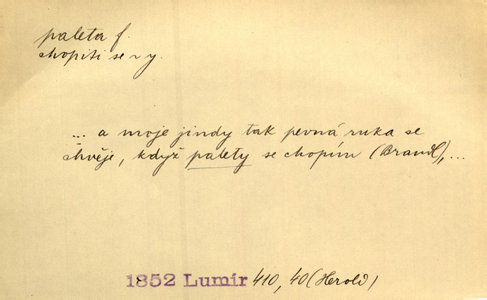 paleta f.
chopiti se ~y.
... a moje jindy tak pevná ruka se
chvěje, když palety se chopím (Brandl), ...
1852 Lumír 410, 40 (Herold)